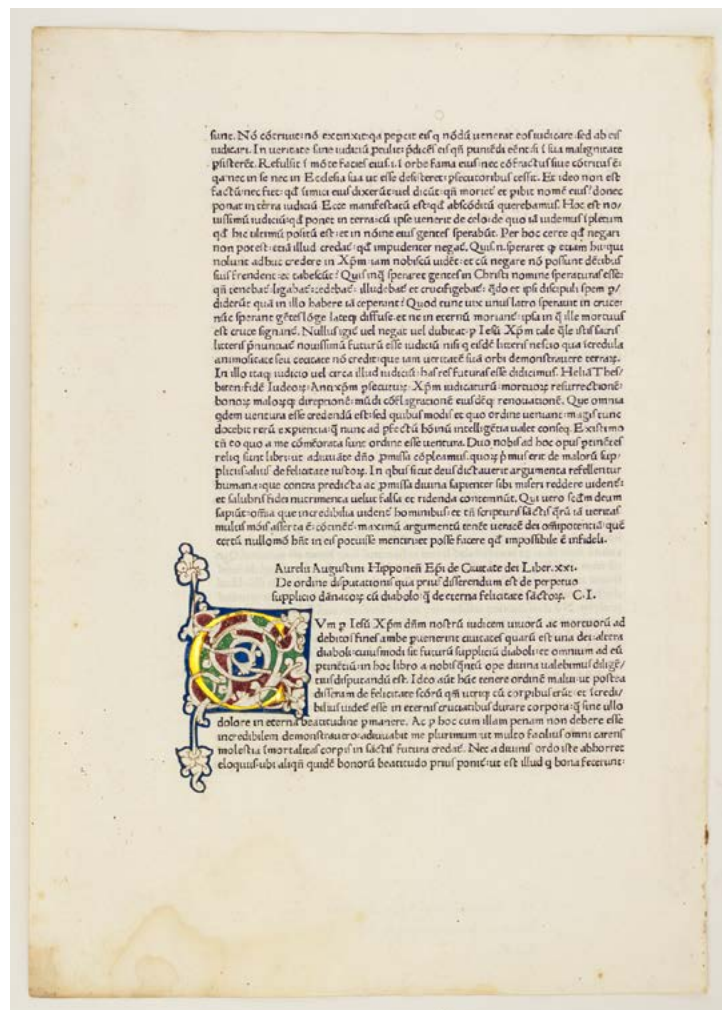 sunt. Nō cōtriuit: nō extinxit: qa pepcit eis q nōdū uenerat eos iudicare: sed ab eis
iudicari. In ueritate sine iudiciū
Refulsit ī mōte facies eius. i. ī orbe fama eius: nec cōfractus siue cōtritus ē:
qa nec in se nec in Ecclesia sua ut esse desisteret: psecutoribus cessit. Et ideo non est
factū nec fiet: qđ inimici eius dixerūt: uel dicūt: qn̄ moriet et pibit nomē eius? donec
ponat in terra iudiciū Ecce manifestatū est: qđ abscōditū querebamus. Hoc est no/
uissimū iudiciū: qđ ponet in terra: cū ipse uenerit de celo: de quo iā uidemus īpletum
qđ hic ultimū positū est: et in nōine eius gentes sperabūt. Per hoc certe qđ negari
non potest: etiā illud credat: qđ impudenter negat. Quis n. speraret q etiam hi: qui
nolunt adhuc credere in Xp̄m: iam nobiscū uidēt: et cū negare nō possunt dētibus
suis frendent: ac tabescūt? Quis inq speraret gentes in Christi nomine speraturas esse:
qn̄ tenebat: ligabat: cedebat: illudebat et crucifigebat: qdo et ipsi discipuli spem p/
diderūt quā in illo habere iā ceperant? Quod tunc uix unus latro sperauit in cruce:
nūc sperant gētes lōge lateq diffuse: et ne in eternū moriant: ipsa in q ille mortuus
est cruce signant. Nullus igit uel negat uel dubitat: p Iesū Xp̄m tale qle istis sacris
litteris pnuntiat nouissimū futurū esse iudiciū nisi q eisdē litteris nescio qua īcredula
animositate seu cecitate nō credit: que iam ueritatē suā orbi demonstrauere terraꝝ.
In illo itaq iudicio uel circa illud iudiciū: has res futuras esse didicimus. Heliā Thes/
biten: fidē Iudeoꝝ: Antixp̄m psecuturꝝ: Xp̄m iudicaturū: mortuoꝝ resurrectionē:
bonoꝝ maloꝝq direptionē: mūdi cōflagrationē eiusdēq renouationē. Que omnia
qdem uentura esse credendū est: sed quibus modis et quo ordine ueniant: magis tunc
docebit rerū expientia: q nunc ad pfectū hōinū intelligētia ualet conseq. Existimo
tn̄ eo quo a me cōmēorata sunt ordine esse uentura. Duo nobis ad hoc opus ptinētes
reliq sunt libri: ut adiuuāte dn̄o pmissa cōpleamus. quoꝝ
pliciis: alius de felicitate iustoꝝ. In qbus sicut deus dictauerit argumenta refellentur
humana: que contra predicta ac pmissa diuina sapienter sibi miseri reddere uident:
et salubris fidei nutrimenta uelut falsa et ridenda contemnūt. Qui uero scdm deum
sapiūt: oīm̄a que incredibilia uident hominibus: et tn̄ scripturis sāctis qrū iā ueritas
multis mōis asserta ē: cōtinēt: maximū argumentū tenēt ueracē dei omīpotentiā: quē
certū nullo mō hn̄t in eis potuisse mentiri: et posse facere qđ impossibile ē infideli.
Aurelii Augustini Hipponeñ Epi de Ciuitate dei Liber. xxi.
De ordine disputationis qua prius disserendum est de perpetuo
supplicio dānatoꝝ cū diabolo: q de eterna felicitate sāctoꝝ. C. I.
CVm p Iesū Xp̄m dn̄m nostrū iudicem uiuorū ac mortuorū ad
debitos fines ambe puenerint ciuitates: quarū est una dei: altera
diaboli: cuiusmodi sit futurū suppliciū diaboli: et omnium ad eū
ptinētiū: in hoc libro a nobis qntū ope diuina ualebimus diligē/
tius disputandū est. Ideo aūt hūc tenere ordinē malui: ut postea
disseram de felicitate scōrū qn̄ utrūq cū corpibus erūt: et īcredi/
bilius uidet esse in eternis cruciatibus durare corpora: q sine ullo
dolore in eterna beatitudine pmanere. Ac p hoc cum illam penam non debere esse
incredibilem demonstrauero: adiuuabit me plurimum: ut multo facilius omni carens
molestia īmortalitas corpis in sāctis futura credat. Nec a diuinis ordo iste abhorret
eloquiis: ubi aliqn̄ quidē bonorū beatitudo prius ponit: ut est illud q bona fecerunt: